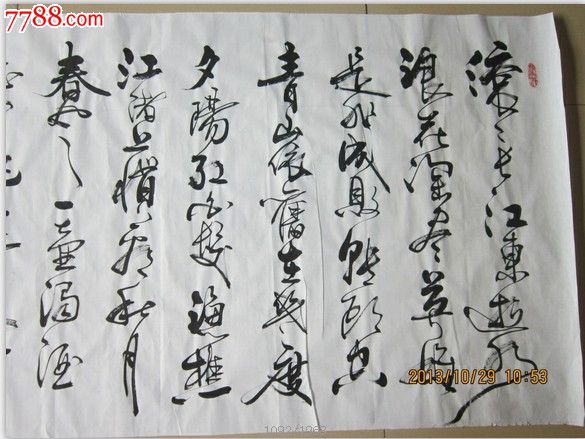 7788.com
滚滚长江東逝水
浪花淘尽英雄
是非成敗转头空
青山依舊在幾度
夕陽红白髮渔樵
江渚上惯看秋月
春风一壶濁酒
2013/10/29 10:53